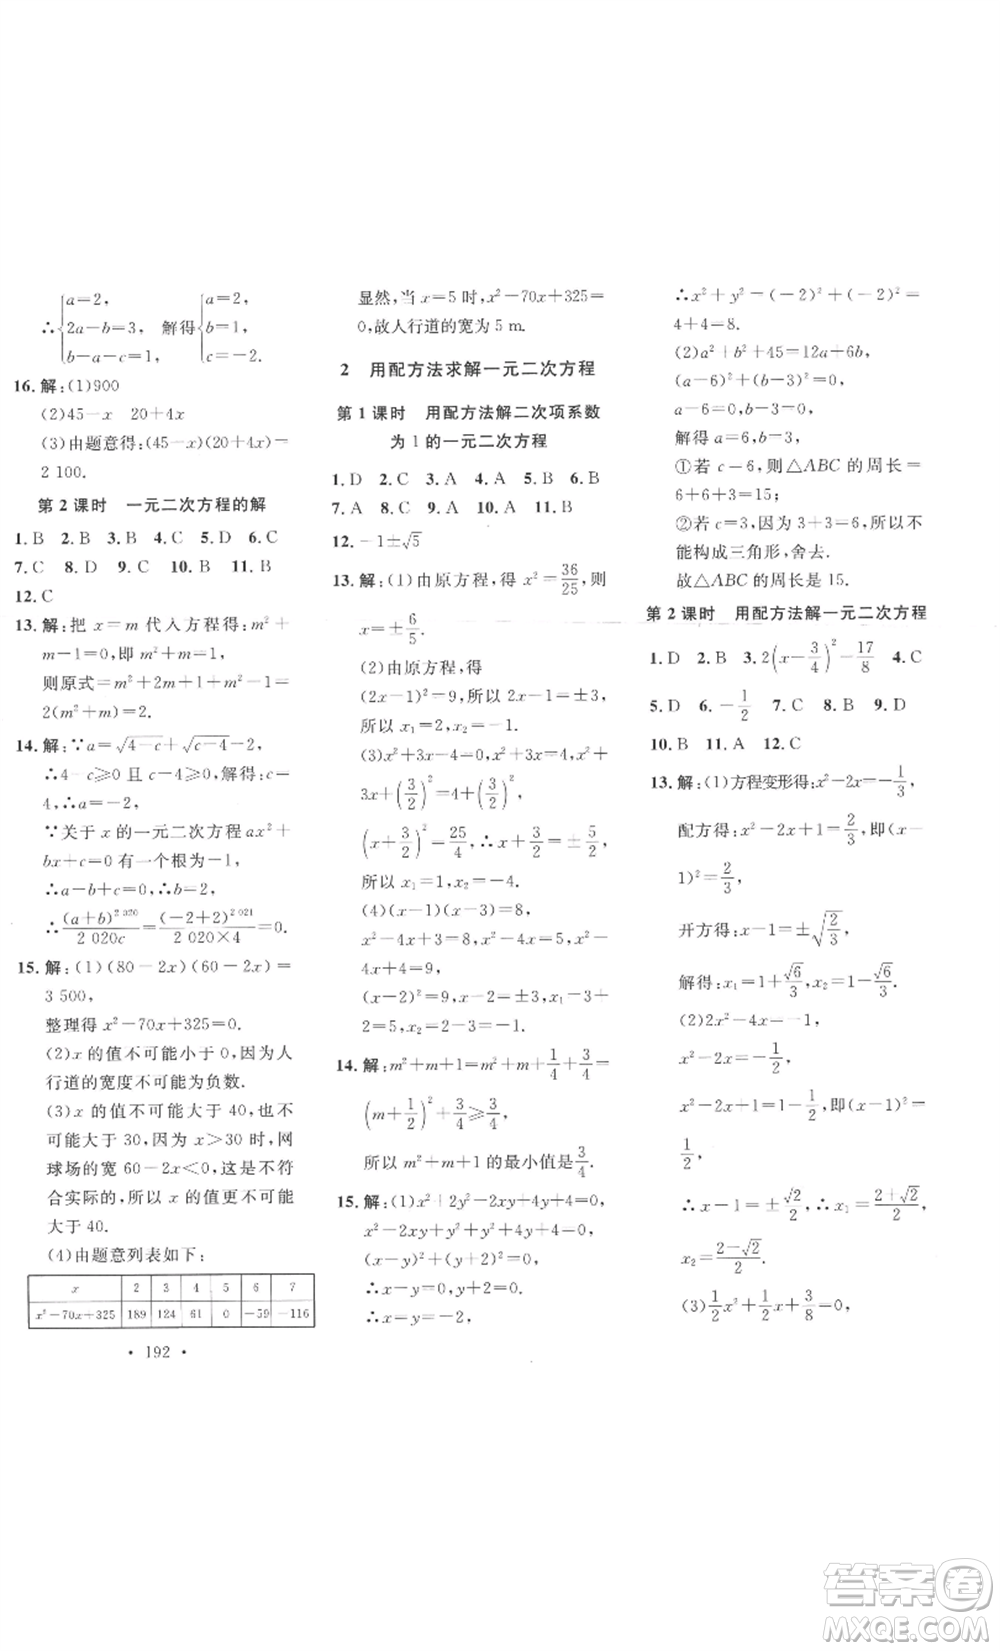 ∴{a=2, 2a-b=3, b-a-c=1, 解得{a=2, b=1, c=-2.
16.解:(1)900
(2)45-x　20+4x
(3)由题意得:(45-x)(20+4x)=
2 100.
第2课时　一元二次方程的解
1.B　2.B　3.B　4.C　5.D　6.C
7.C　8.D　9.C　10.B　11.B
12.C
13.解:把 x=m 代入方程得:m²+
m-1=0,即 m²+m=1,
则原式=m²+m+m²+m-1=
2(m²+m)=2.
14.解:∵a=√(4-c)+√(c-4)-2,
∴4-c≥0 且 c-4≥0,解得:c=
4,∴a=-2,
∵关于 x 的一元二次方程 ax²+
bx+c=0 有一个根为-1,
∴a-b+c=0,∴b=2,
∴(a+b)^2 020/2 020c=(-2+2)^2 021/2 020×4=0.
15.解:(1)(80-2x)(60-2x)=
3 500,
整理得 x²-70x+325=0.
(2)x 的值不可能小于 0,因为人
行道的宽度不可能为负数.
(3)x 的值不可能大于 40,也不
可能大于 30,因为 x>30 时,网
球场的宽 60-2x<0,这是不符
合实际的,所以 x 的值更不可能
大于 40.
(4)由题意列表如下:
x　2　3　4　5　6　7
x²-70x+325　189　124　61　0　-59　-116
· 192 ·
显然,当 x=5 时,x²-70x+325=
0,故人行道的宽为 5 m.
2　用配方法求解一元二次方程
第1课时　用配方法解二次项系数
为1的一元二次方程
1.D　2.C　3.A　4.A　5.A　6.B
7.A　8.C　9.A　10.A　11.B
12.-1±√5
13.解:(1)由原方程,得 x²=36/25,则
x=±6/5.
(2)由原方程,得
(2x-1)²=9,所以 2x-1=±3,
所以 x₁=2,x₂=-1.
(3)x²+3x-4=0,x²+3x=4,x²+
3x+(3/2)²=4+(3/2)²,
(x+3/2)²=25/4,∴x+3/2=±5/2,
所以 x₁=1,x₂=-4.
(4)(x-5)(x+1)=8,
x²-4x-5=8+5=0,x²-
4x+4=9,
(x-2)²=9,x-2=±3,x₁=3+
2=5,x₂=2-3=-1.
14.解:m²+m+1=m²+m+1/4+3/4=
(m+1/2)²+3/4≥3/4,
所以 m²+m+1 的最小值是3/4.
15.解:(1)x²+2y²-2xy+4y+4=0,
x²-2xy+y²+y²+4y+4=0,
(x-y)²+(y+2)²=0,
∴x-y=0,y+2=0,
∴x=-2,y=-2,
∴x²+y²=(-2)²+(-2)²=
4+4=8.
(2)a²+b²+45=12a+6b,
(a-6)²+(b-3)²=0,
a-6=0,b-3=0,
解得 a=6,b=3,
①若 c=6,则△ABC 的周长=
6+6+3=15;
②若 c=3,因为 3+3=6,所以不
能构成三角形,舍去.
故△ABC 的周长是15.
第2课时　用配方法解一元二次方程
1.D　2.B　3.2(x-3/4)²-17/8　4.C
5.D　6.-1/2　7.C　8.B　9.D
10.B　11.A　12.C
13.解:(1)方程变形得:x²-2x=-1/3,
配方得:x²-2x+1=2/3,即(x-
1)²=2/3,
开方得:x-1=±√(2/3),
解得:x₁=1+√6/3,x₂=1-√6/3.
(2)2x²-4x+1=0,
x²-2x=-1/2,
x²-2x+1=1-1/2,即(x-1)²=
1/2,
∴x-1=±√2/2,∴x₁=(2+√2)/2,
x₂=(2-√2)/2.
(3)1/2x²+1/2x+3/8=0,
答案圈
MXQE.COM